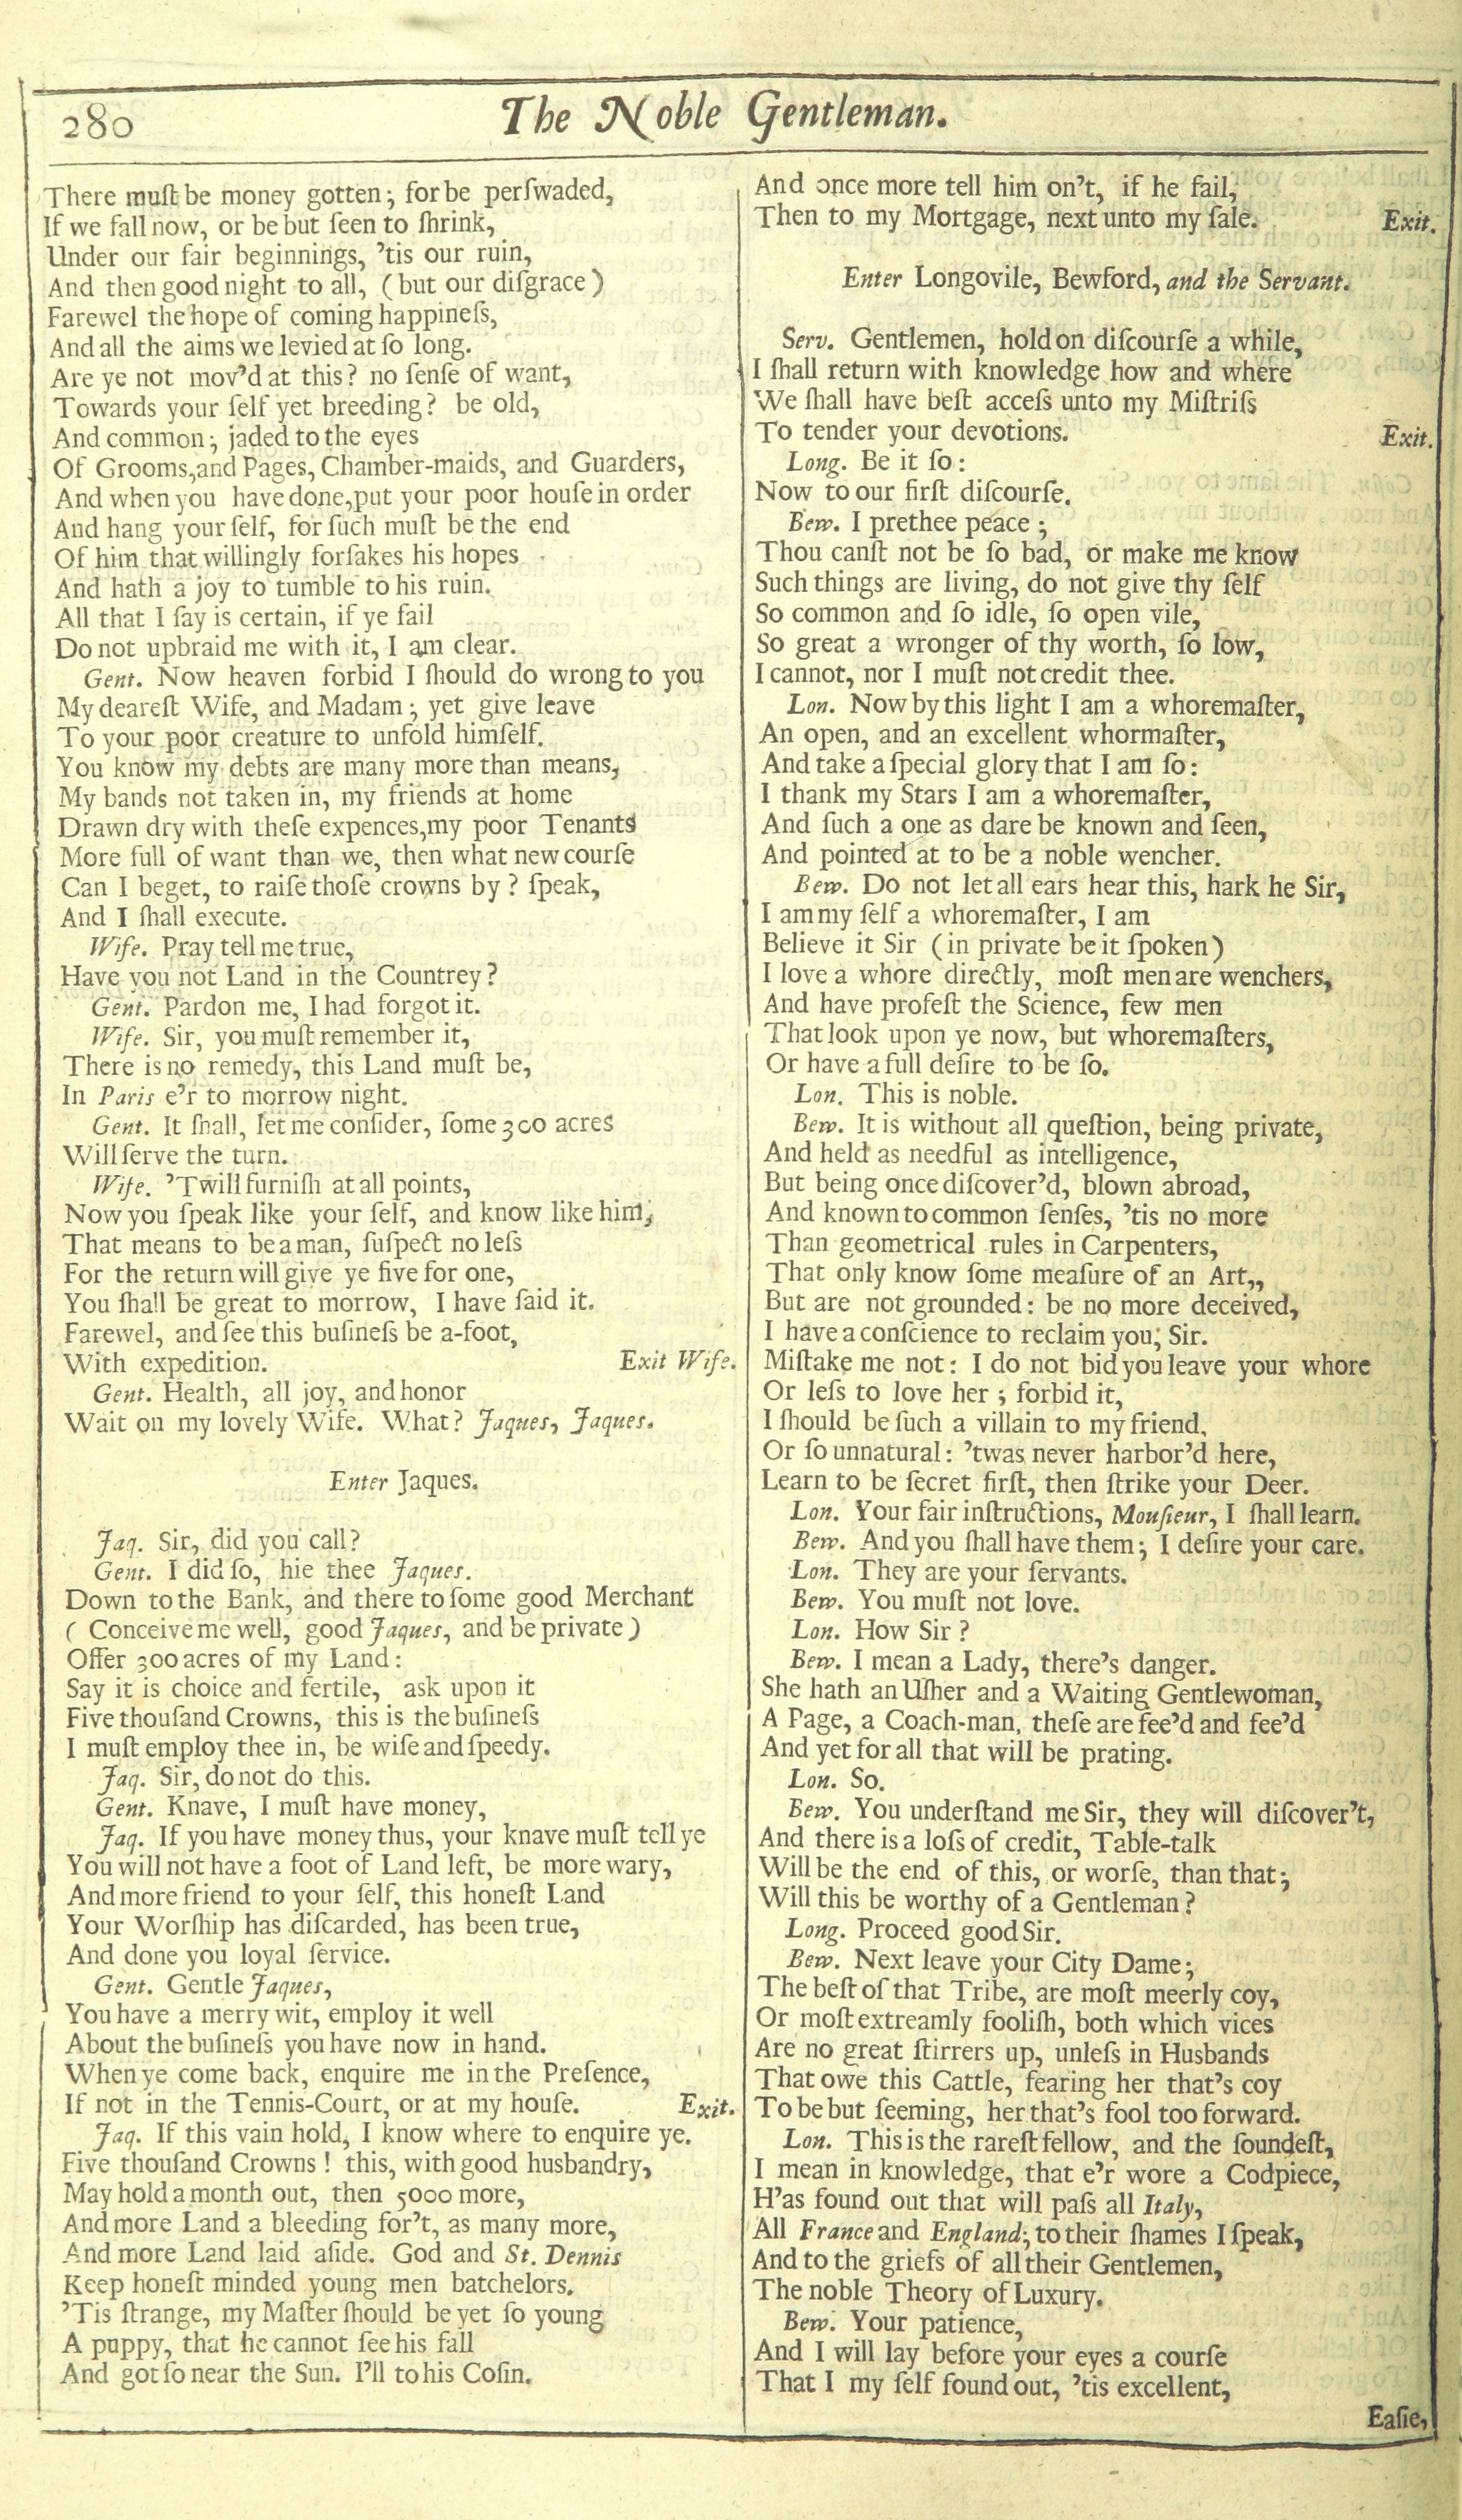 280
The Noble Gentleman.
There muſt be money gotten; for be perſwaded,
If we fall now, or be but ſeen to ſhrink,
Under our fair beginnings, 'tis our ruin,
And then good night to all, (but our diſgrace)
Farewel the hope of coming happineſs,
And all the aims we levied at ſo long.
Are ye not mov'd at this? no ſenſe of want,
Towards your ſelf yet breeding? be old,
And common; jaded to the eyes
Of Grooms, and Pages, Chamber-maids, and Guarders,
And when you have done, put your poor houſe in order
And hang your ſelf, for ſuch muſt be the end
Of him that willingly forſakes his hopes
And hath a joy to tumble to his ruin.
All that I ſay is certain, if ye fail
Do not upbraid me with it, I am clear.
Gent. Now heaven forbid I ſhould do wrong to you
My deareſt Wife, and Madam; yet give leave
To your poor creature to unfold himſelf.
You know my debts are many more than means,
My bands not taken in, my friends at home
Drawn dry with theſe expences, my poor Tenants
More full of want than we, then what new courſe
Can I beget, to raiſe thoſe crowns by? ſpeak,
And I ſhall execute.
Wife. Pray tell me true,
Have you not Land in the Countrey?
Gent. Pardon me, I had forgot it.
Wife. Sir, you muſt remember it,
There is no remedy, this Land muſt be,
In Paris e'r to morrow night.
Gent. It ſhall, let me conſider, ſome 300 acres
Will ſerve the turn.
Wife. 'Twill furniſh at all points,
Now you ſpeak like your ſelf, and know like him,
That means to be a man, ſuſpect no leſs
For the return will give ye five for one,
You ſhall be great to morrow, I have ſaid it.
Farewel, and ſee this buſineſs be a-foot,
With expedition. Exit Wife.
Gent. Health, all joy, and honor
Wait on my lovely Wife. What? Jaques, Jaques.
Enter Jaques.
Jaq. Sir, did you call?
Gent. I did ſo, hie thee Jaques.
Down to the Bank, and there to ſome good Merchant
( Conceive me well, good Jaques, and be private )
Offer 300 acres of my Land:
Say it is choice and fertile, ask upon it
Five thouſand Crowns, this is the buſineſs
I muſt employ thee in, be wiſe and ſpeedy.
Jaq. Sir, do not do this.
Gent. Knave, I muſt have money,
Jaq. If you have money thus, your knave muſt tell ye
You will not have a foot of Land left, be more wary,
And more friend to your ſelf, this honeſt Land
Your Worſhip has diſcarded, has been true,
And done you loyal ſervice.
Gent. Gentle Jaques,
You have a merry wit, employ it well
About the buſineſs you have now in hand.
When ye come back, enquire me in the Preſence,
If not in the Tennis-Court, or at my houſe. Exit.
Jaq. If this vain hold, I know where to enquire ye.
Five thouſand Crowns! this, with good husbandry,
May hold a month out, then 5000 more,
And more Land a bleeding for't, as many more,
And more Land laid aſide. God and St. Dennis
Keep honeſt minded young men batchelors.
'Tis ſtrange, my Maſter ſhould be yet ſo young
A puppy, that he cannot ſee his fall
And got ſo near the Sun. I'll to his Coſin.
And once more tell him on't, if he fail,
Then to my Mortgage, next unto my ſale. Exit.
Enter Longovile, Bewford, and the Servant.
Serv. Gentlemen, hold on diſcourſe a while,
I ſhall return with knowledge how and where
We ſhall have beſt acceſs unto my Miſtriſs
To tender your devotions. Exit.
Long. Be it ſo:
Now to our firſt diſcourſe.
Bew. I prethee peace;
Thou canſt not be ſo bad, or make me know
Such things are living, do not give thy ſelf
So common and ſo idle, ſo open vile,
So great a wronger of thy worth, ſo low,
I cannot, nor I muſt not credit thee.
Lon. Now by this light I am a whoremaſter,
An open, and an excellent whormaſter,
And take a ſpecial glory that I am ſo:
I thank my Stars I am a whoremaſter,
And ſuch a one as dare be known and ſeen,
And pointed at to be a noble wencher.
Bew. Do not let all ears hear this, hark he Sir,
I am my ſelf a whoremaſter, I am
Believe it Sir (in private be it ſpoken)
I love a whore directly, moſt men are wenchers,
And have profeſt the Science, few men
That look upon ye now, but whoremaſters,
Or have a full deſire to be ſo.
Lon. This is noble.
Bew. It is without all queſtion, being private,
And held as needful as intelligence,
But being once diſcover'd, blown abroad,
And known to common ſenſes, 'tis no more
Than geometrical rules in Carpenters,
That only know ſome meaſure of an Art,,
But are not grounded: be no more deceived,
I have a conſcience to reclaim you, Sir.
Miſtake me not: I do not bid you leave your whore
Or leſs to love her; forbid it,
I ſhould be ſuch a villain to my friend,
Or ſo unnatural: 'twas never harbor'd here,
Learn to be ſecret firſt, then ſtrike your Deer.
Lon. Your fair inſtructions, Mouſieur, I ſhall learn.
Bew. And you ſhall have them; I deſire your care.
Lon. They are your ſervants.
Bew. You muſt not love.
Lon. How Sir?
Bew. I mean a Lady, there's danger.
She hath an Uſher and a Waiting Gentlewoman,
A Page, a Coach-man, theſe are fee'd and fee'd
And yet for all that will be prating.
Lon. So.
Bew. You underſtand me Sir, they will diſcover't,
And there is a loſs of credit, Table-talk
Will be the end of this, or worſe, than that;
Will this be worthy of a Gentleman?
Long. Proceed good Sir.
Bew. Next leave your City Dame;
The beſt of that Tribe, are moſt meerly coy,
Or moſt extreamly fooliſh, both which vices
Are no great ſtirrers up, unleſs in Husbands
That owe this Cattle, fearing her that's coy
To be but ſeeming, her that's fool too forward.
Lon. This is the rareſt fellow, and the ſoundeſt,
I mean in knowledge, that e'r wore a Codpiece,
H'as found out that will paſs all Italy,
All France and England; to their ſhames I ſpeak,
And to the griefs of all their Gentlemen,
The noble Theory of Luxury.
Bew. Your patience,
And I will lay before your eyes a courſe
That I my ſelf found out, 'tis excellent,
Eaſie,